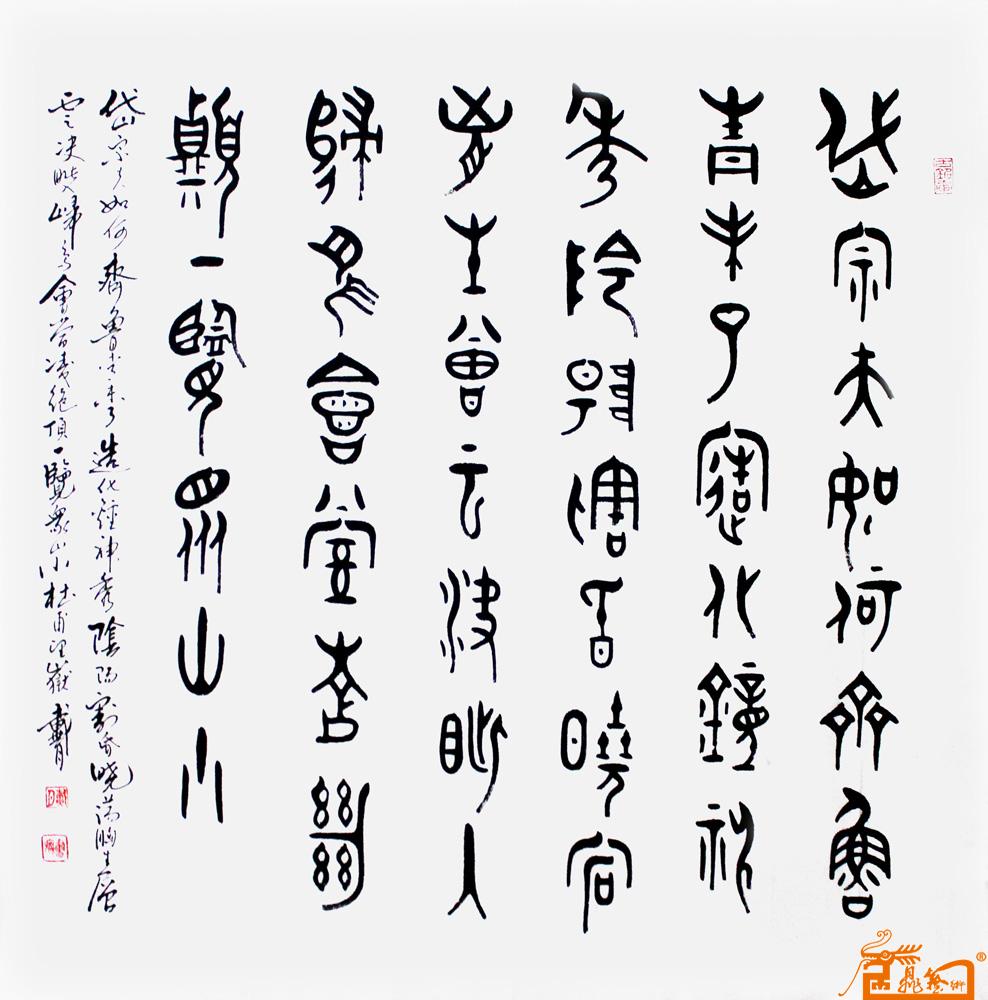 岱宗夫如何齊魯
青未了造化鐘神
秀陰陽割昏曉宕
匈生曾云決眥入
歸鳥會當夌絕
頂一覽眾山小
岱宗夫如何齊魯青未了造化鍾神秀陰陽割昏曉蕩胸生層
雲決眥入歸鳥會當凌絕頂一覽眾山小杜甫望嶽 戴